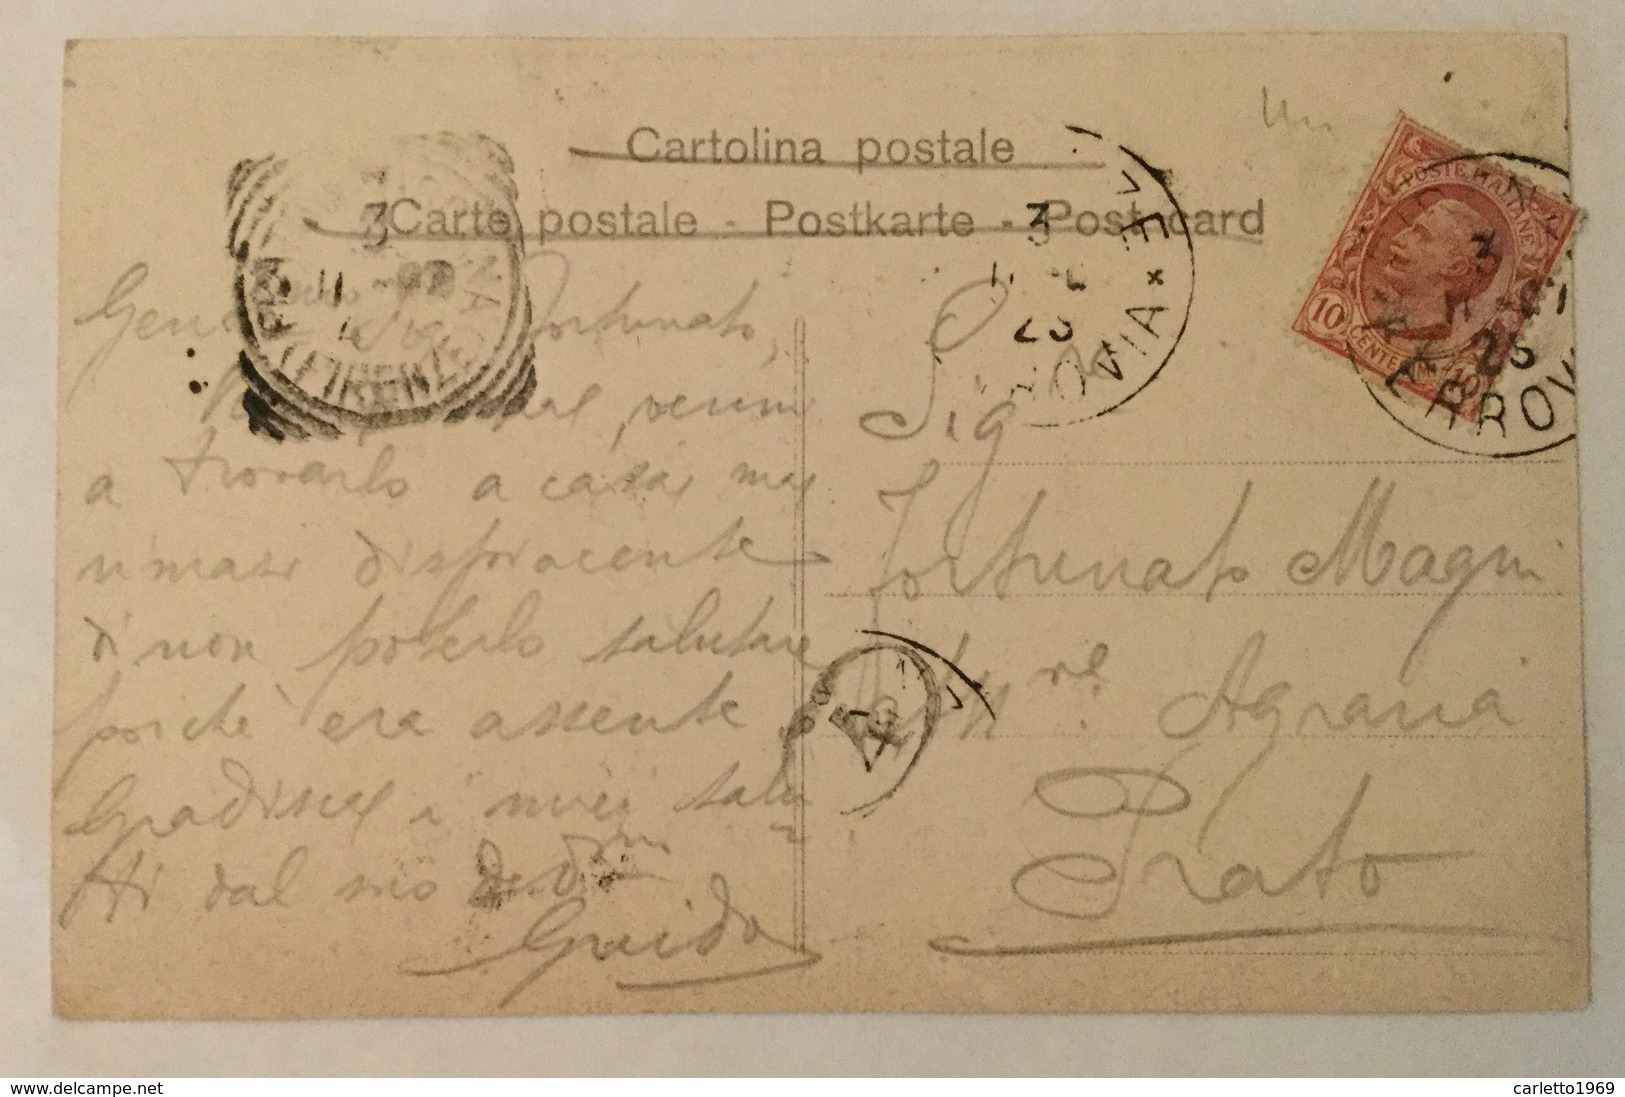 Cartolina postale
Carte postale - Postkarte - Post card
POSTE ITALIANE
10 CENTESIMI 10
3
11
25
FERROVIA
3
3
11
FIRENZE
Fortunato,
venni
a trovarlo a casa, ma
rimasi dispiacente
di non poterlo salutare
poichè era assente
Gradisca i miei salu
ti dal suo
Guido
Sig
Fortunato Magni
Agraria
Prato
www.delcampe.net
carletto1969